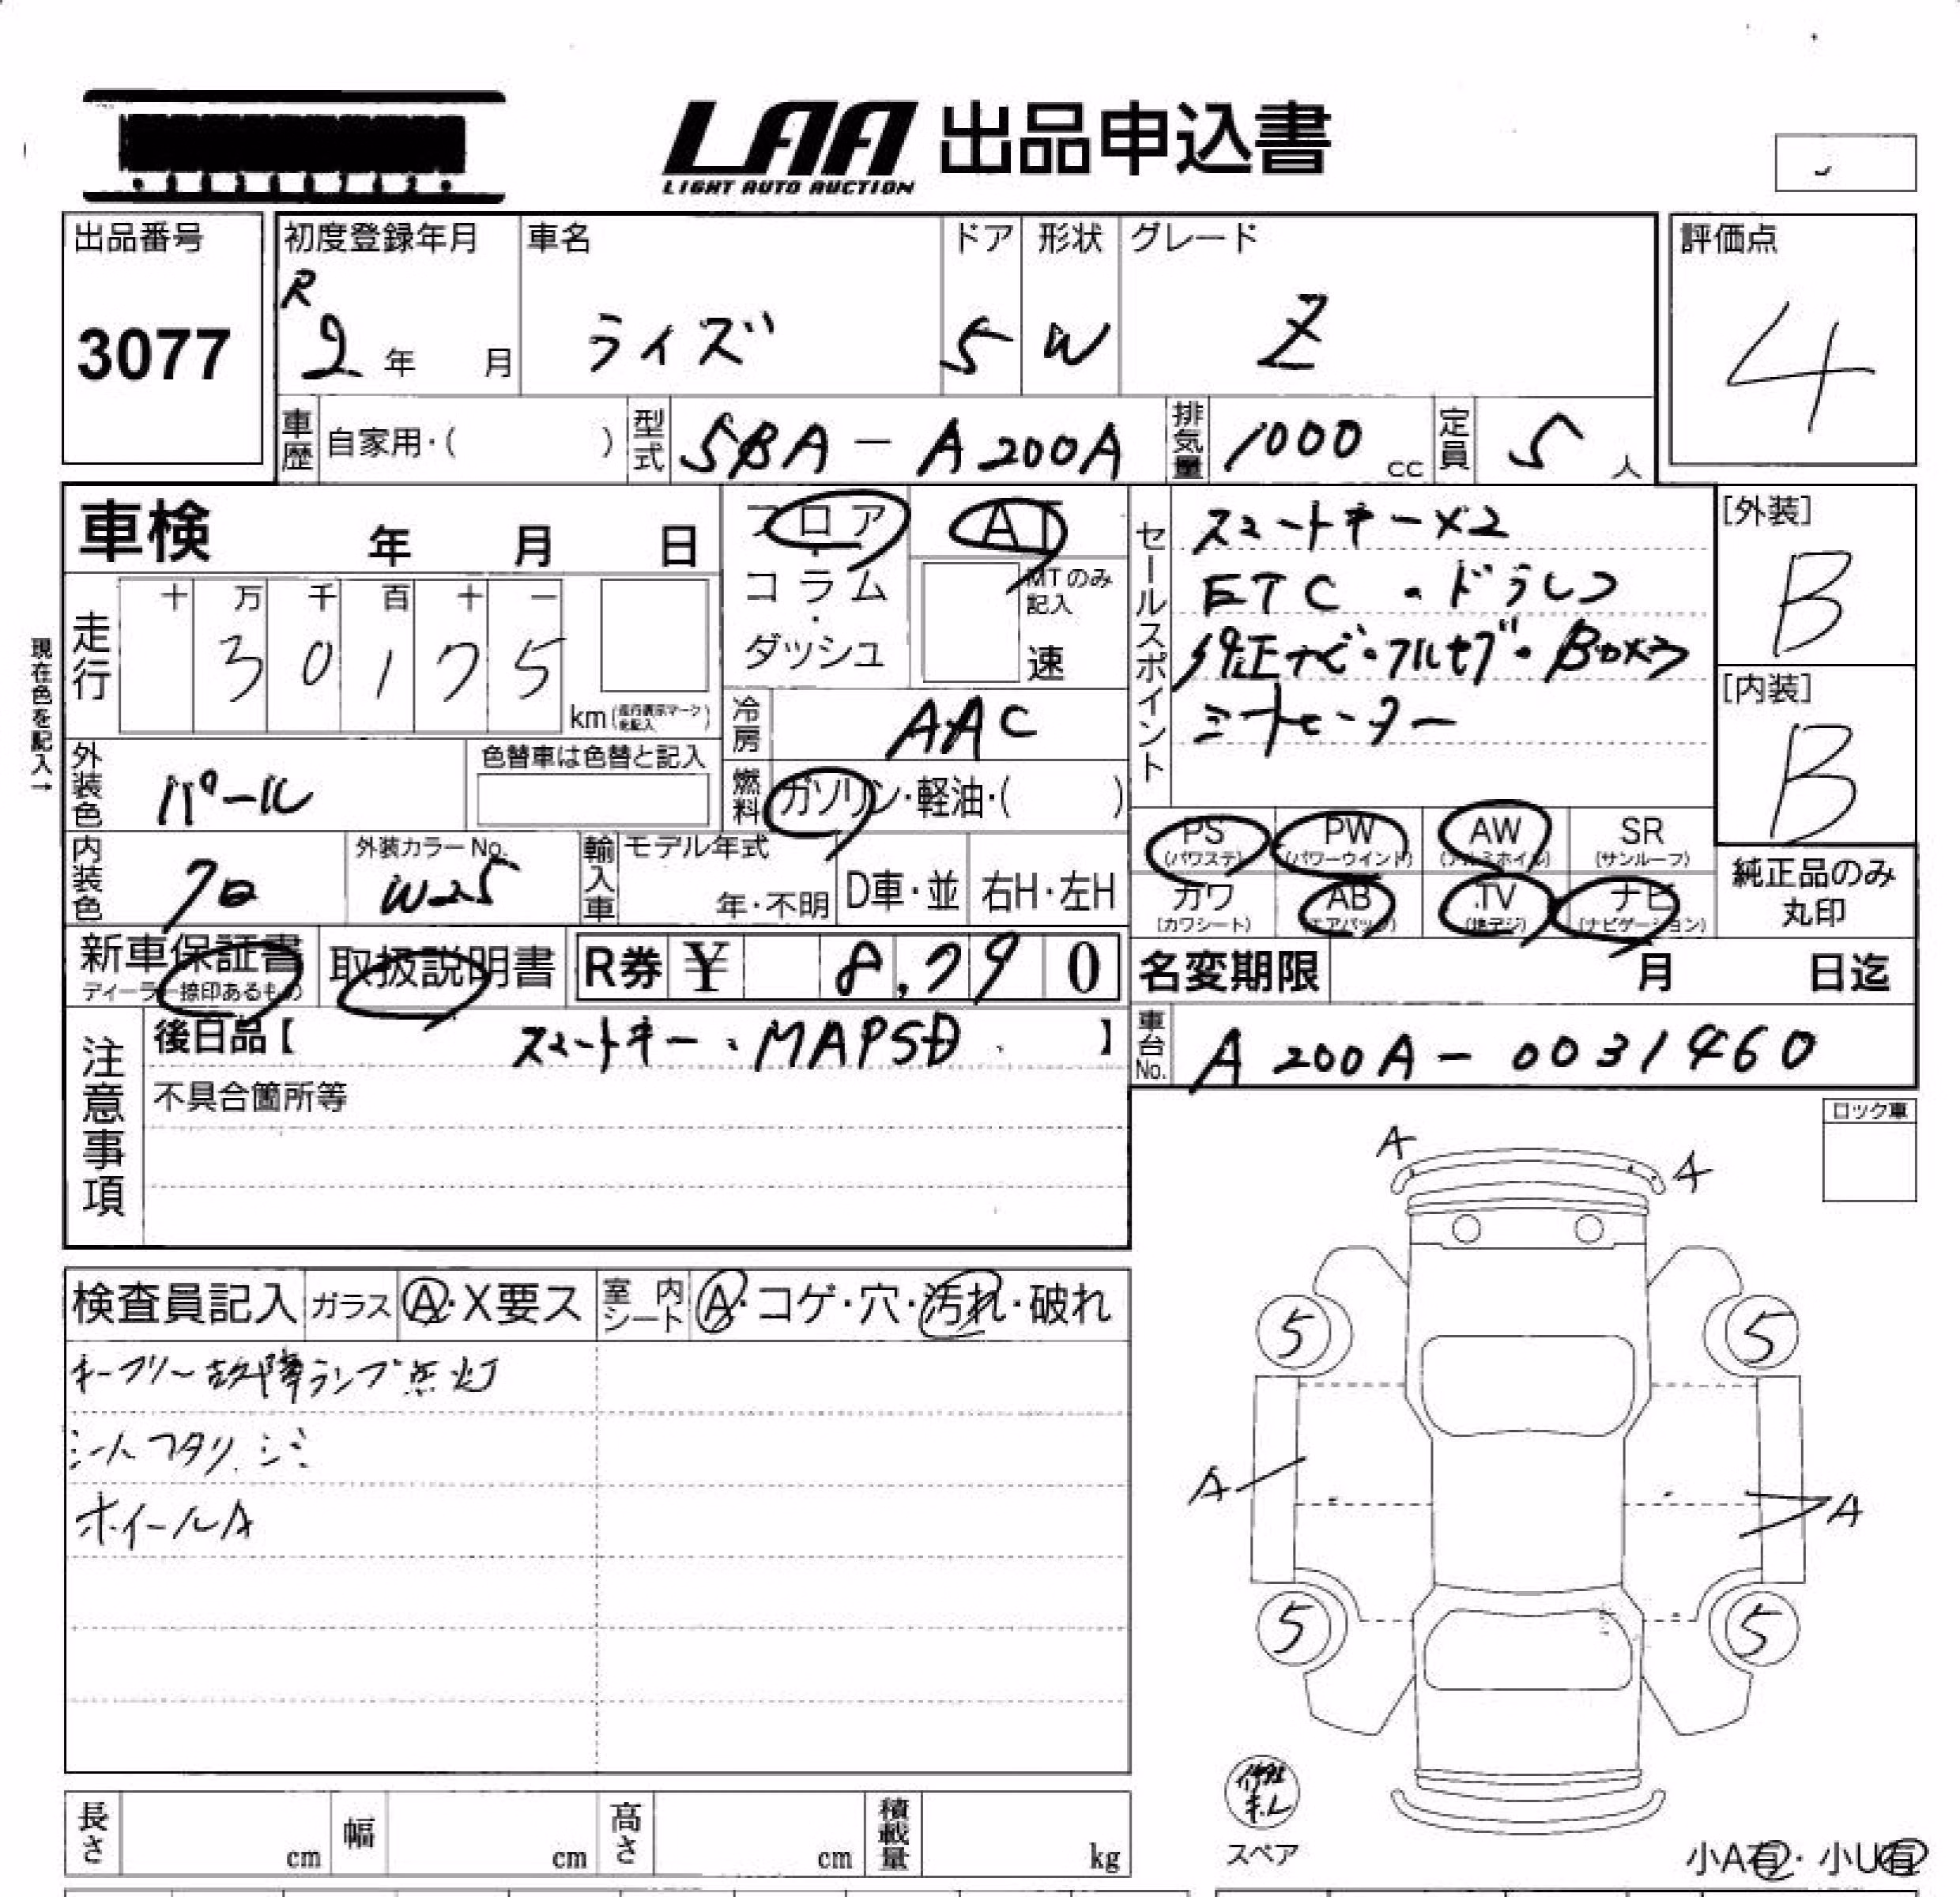 LAA 出品申込書
LIGHT AUTO AUCTION
出品番号
3077
初度登録年月
R
2 年 月
車名
ライズ
ドア
5
形状
W
グレード
Z
評価点
4
車歴 自家用・( )
型式 5BA-A200A
排気量 1000 cc
定員 5 人
車検 年 月 日
フロア
・
コラム
・
ダッシュ
AT
MTのみ
記入
速
セールスポイント
スマートキー×2
ETC ・ドラレコ
純正ナビ・フルセグ・
シートヒーター
[外装]
B
[内装]
B
現在色を記入→
走行
十 万 千 百 十 一
3 0 1 7 5
km (走行表示マークを記入)
冷房 AAC
外装色 パール
色替車は色替と記入
燃料 ガソリン・軽油・( )
PS
(パワステ)
PW
(パワーウインド)
AW
(アルミホイル)
SR
(サンルーフ)
カワ
(カワシート)
AB
(エアバック)
TV
(地デジ)
ナビ
(ナビゲーション)
純正品のみ
丸印
内装色 クロ
外装カラーNo.
W25
輸入車
モデル年式
年・不明
D車・並
右H・左H
新車保証書
ディーラー捺印あるもの
取扱説明書
R券 ¥ 8,790
名変期限 月 日迄
注意事項
後日品【 スマートキー、MAPSD 】
不具合箇所等
車台No. A200A-0031460
ロック車
A
A
検査員記入 ガラス A・X要ス 室内シート A・コゲ・穴・汚れ・破れ
キーフリー故障ランプ点灯
シートヘタリ、シミ
ホイールA
5
5
A
A
5
5
修理キ.レ
スペア
小A有・小U有
長さ cm
幅 cm
高さ cm
積載量 kg